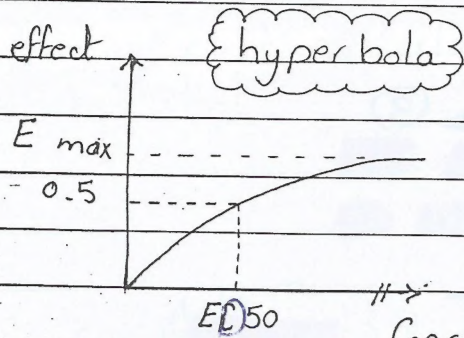 effect
hyperbola
E max
- 0.5
EC50